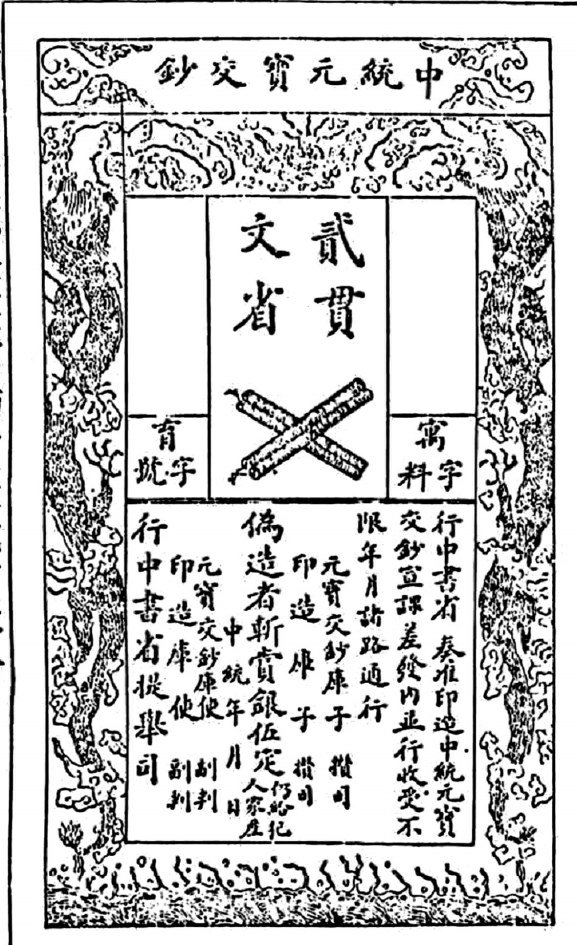 中統元寶交鈔
貳貫
文省
寓
字料
育
字號
行中書省 奏准印造中統元寶
交鈔宣課差發內並行收受不
限年月諸路通行
元寶交鈔庫子 攢司
印造庫子 攢司
偽造者斬賞銀伍定仍給犯人家產
中統年月日
元寶交鈔庫使 副判
印造庫使 副判
行中書省提舉司